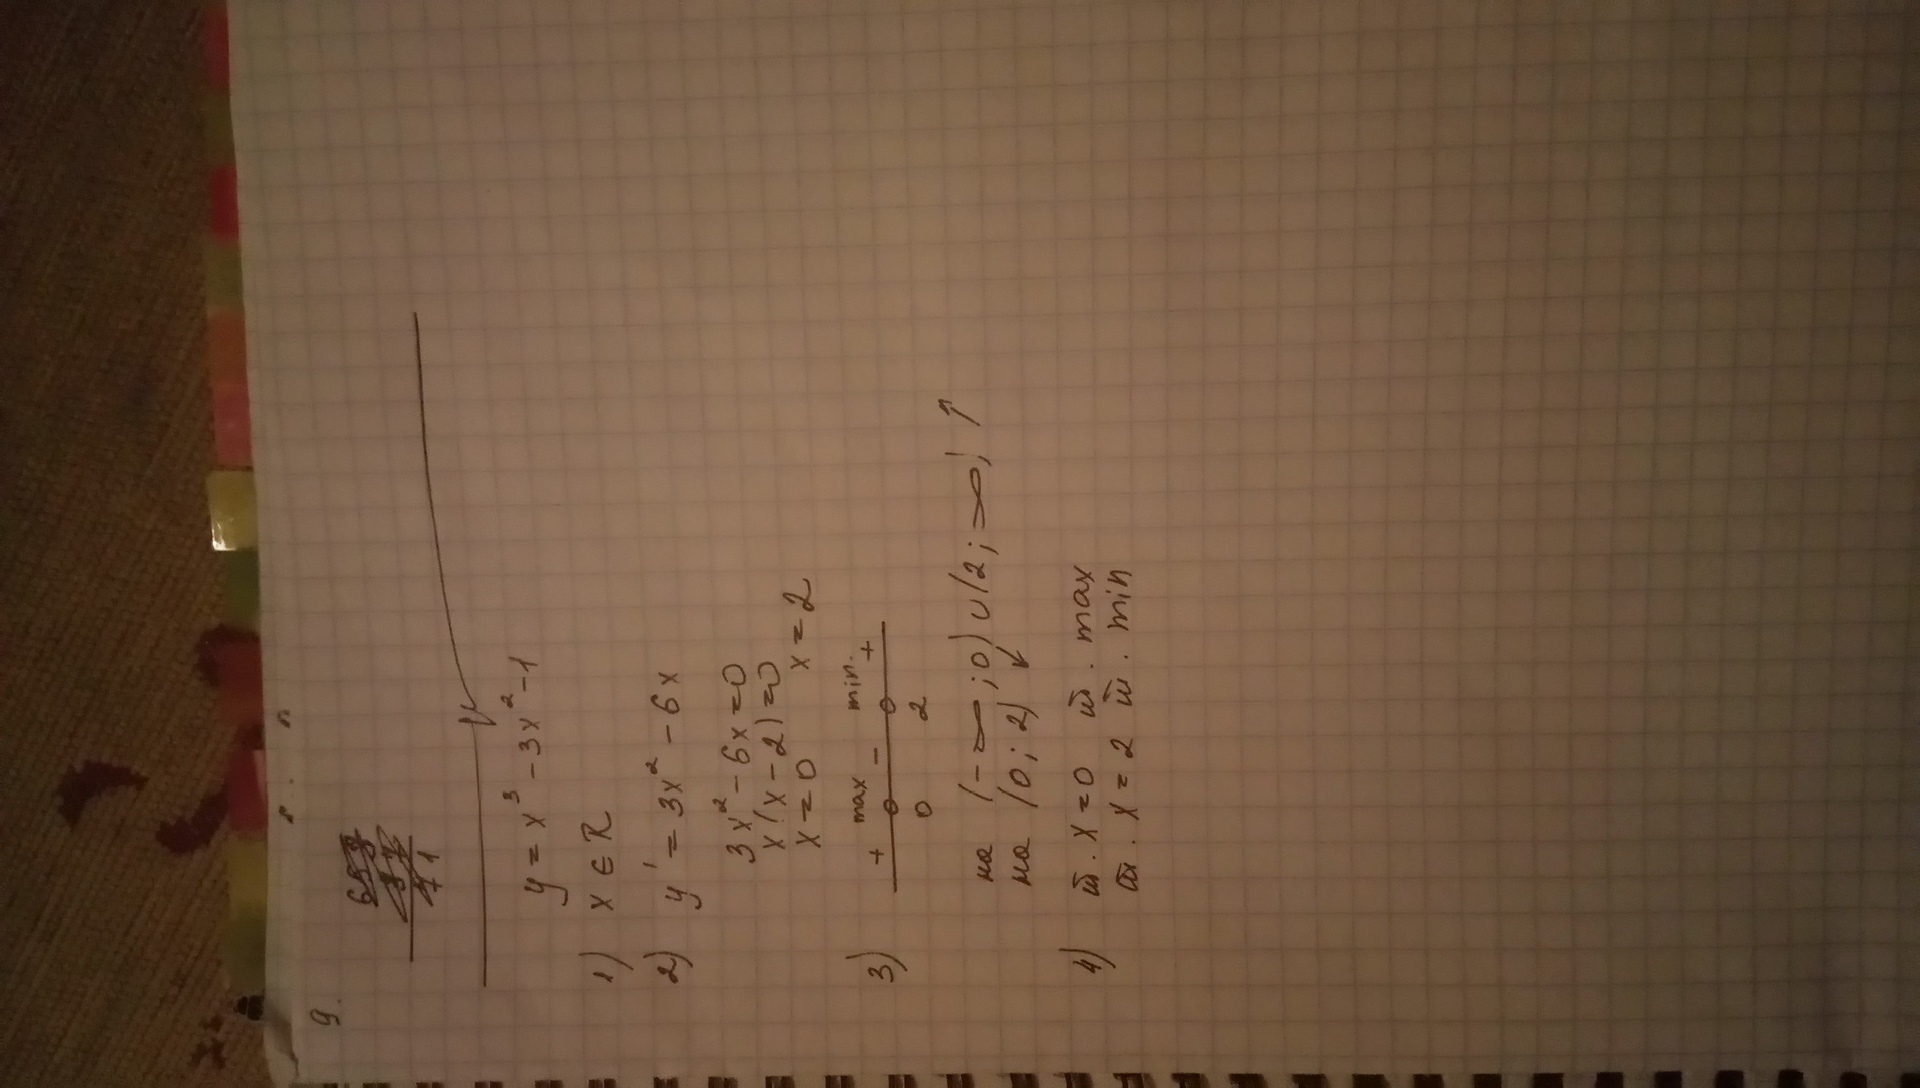 9.
y = x³ - 3x² - 1
1) x ∈ R
2) y' = 3x² - 6x
3x² - 6x = 0
x(x - 2) = 0
x = 0 x = 2
3) + max - min. +
0 2
на (-∞; 0) ∪ (2; ∞) ↑
на (0; 2) ↙
4) т. x = 0 т. max
т. x = 2 т. min